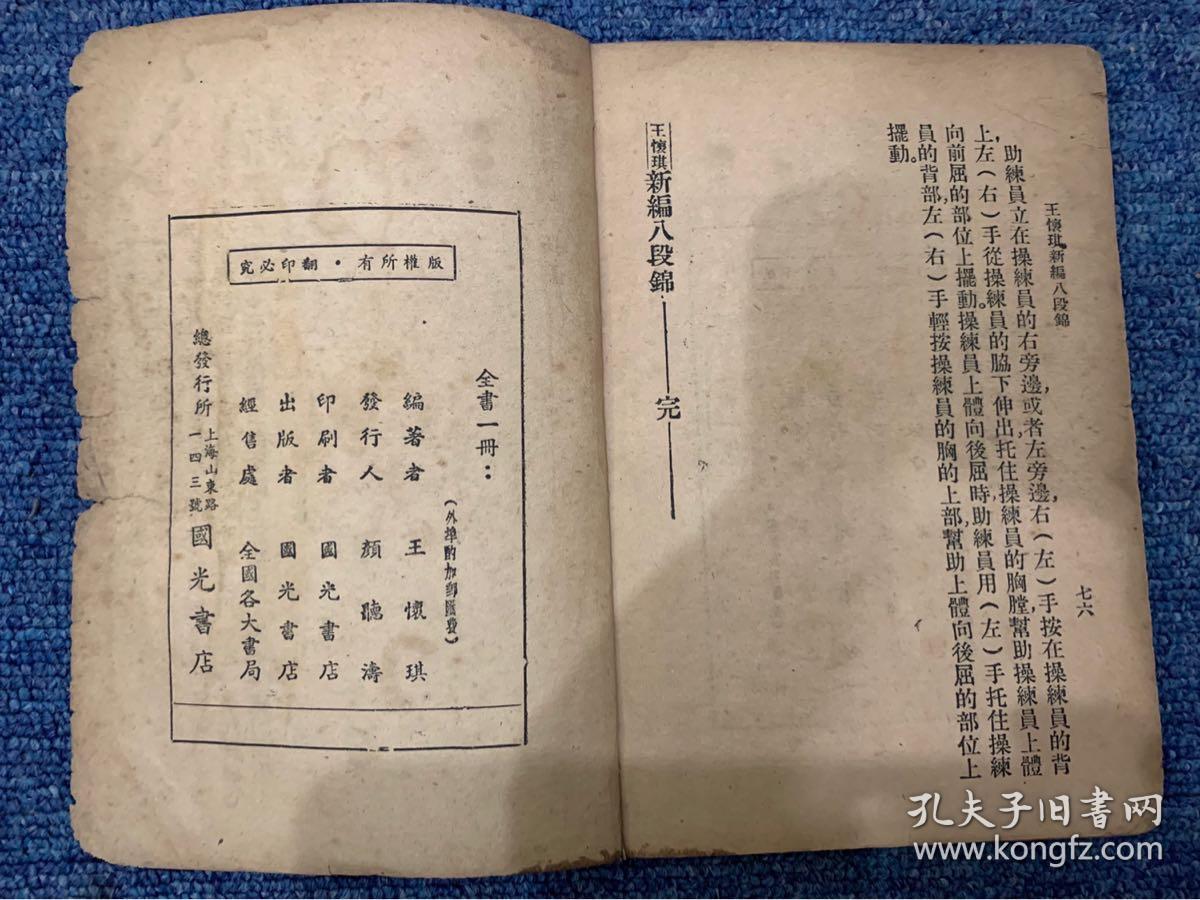 王懷琪新編八段錦
七六
助練員立在操練員的右旁邊,或者左旁邊,右(左)手按在操練員的背
上,左(右)手從操練員的脇下伸出托住操練員的胸膛,幫助操練員上體
向前屈的部位上擺動。操練員上體向後屈時,助練員用(左)手托住操練
員的背部,左(右)手輕按操練員的胸的上部,幫助上體向後屈的部位上
擺動。
王懷琪新編八段錦——完——
版權所有・翻印必究
全書一冊:
(外埠酌加郵匯費)
編著者 王懷琪
發行人 顏聽濤
印刷者 國光書店
出版者 國光書店
經售處 全國各大書局
總發行所 上海山東路一四三號 國光書店
孔夫子旧书网
www.kongfz.com